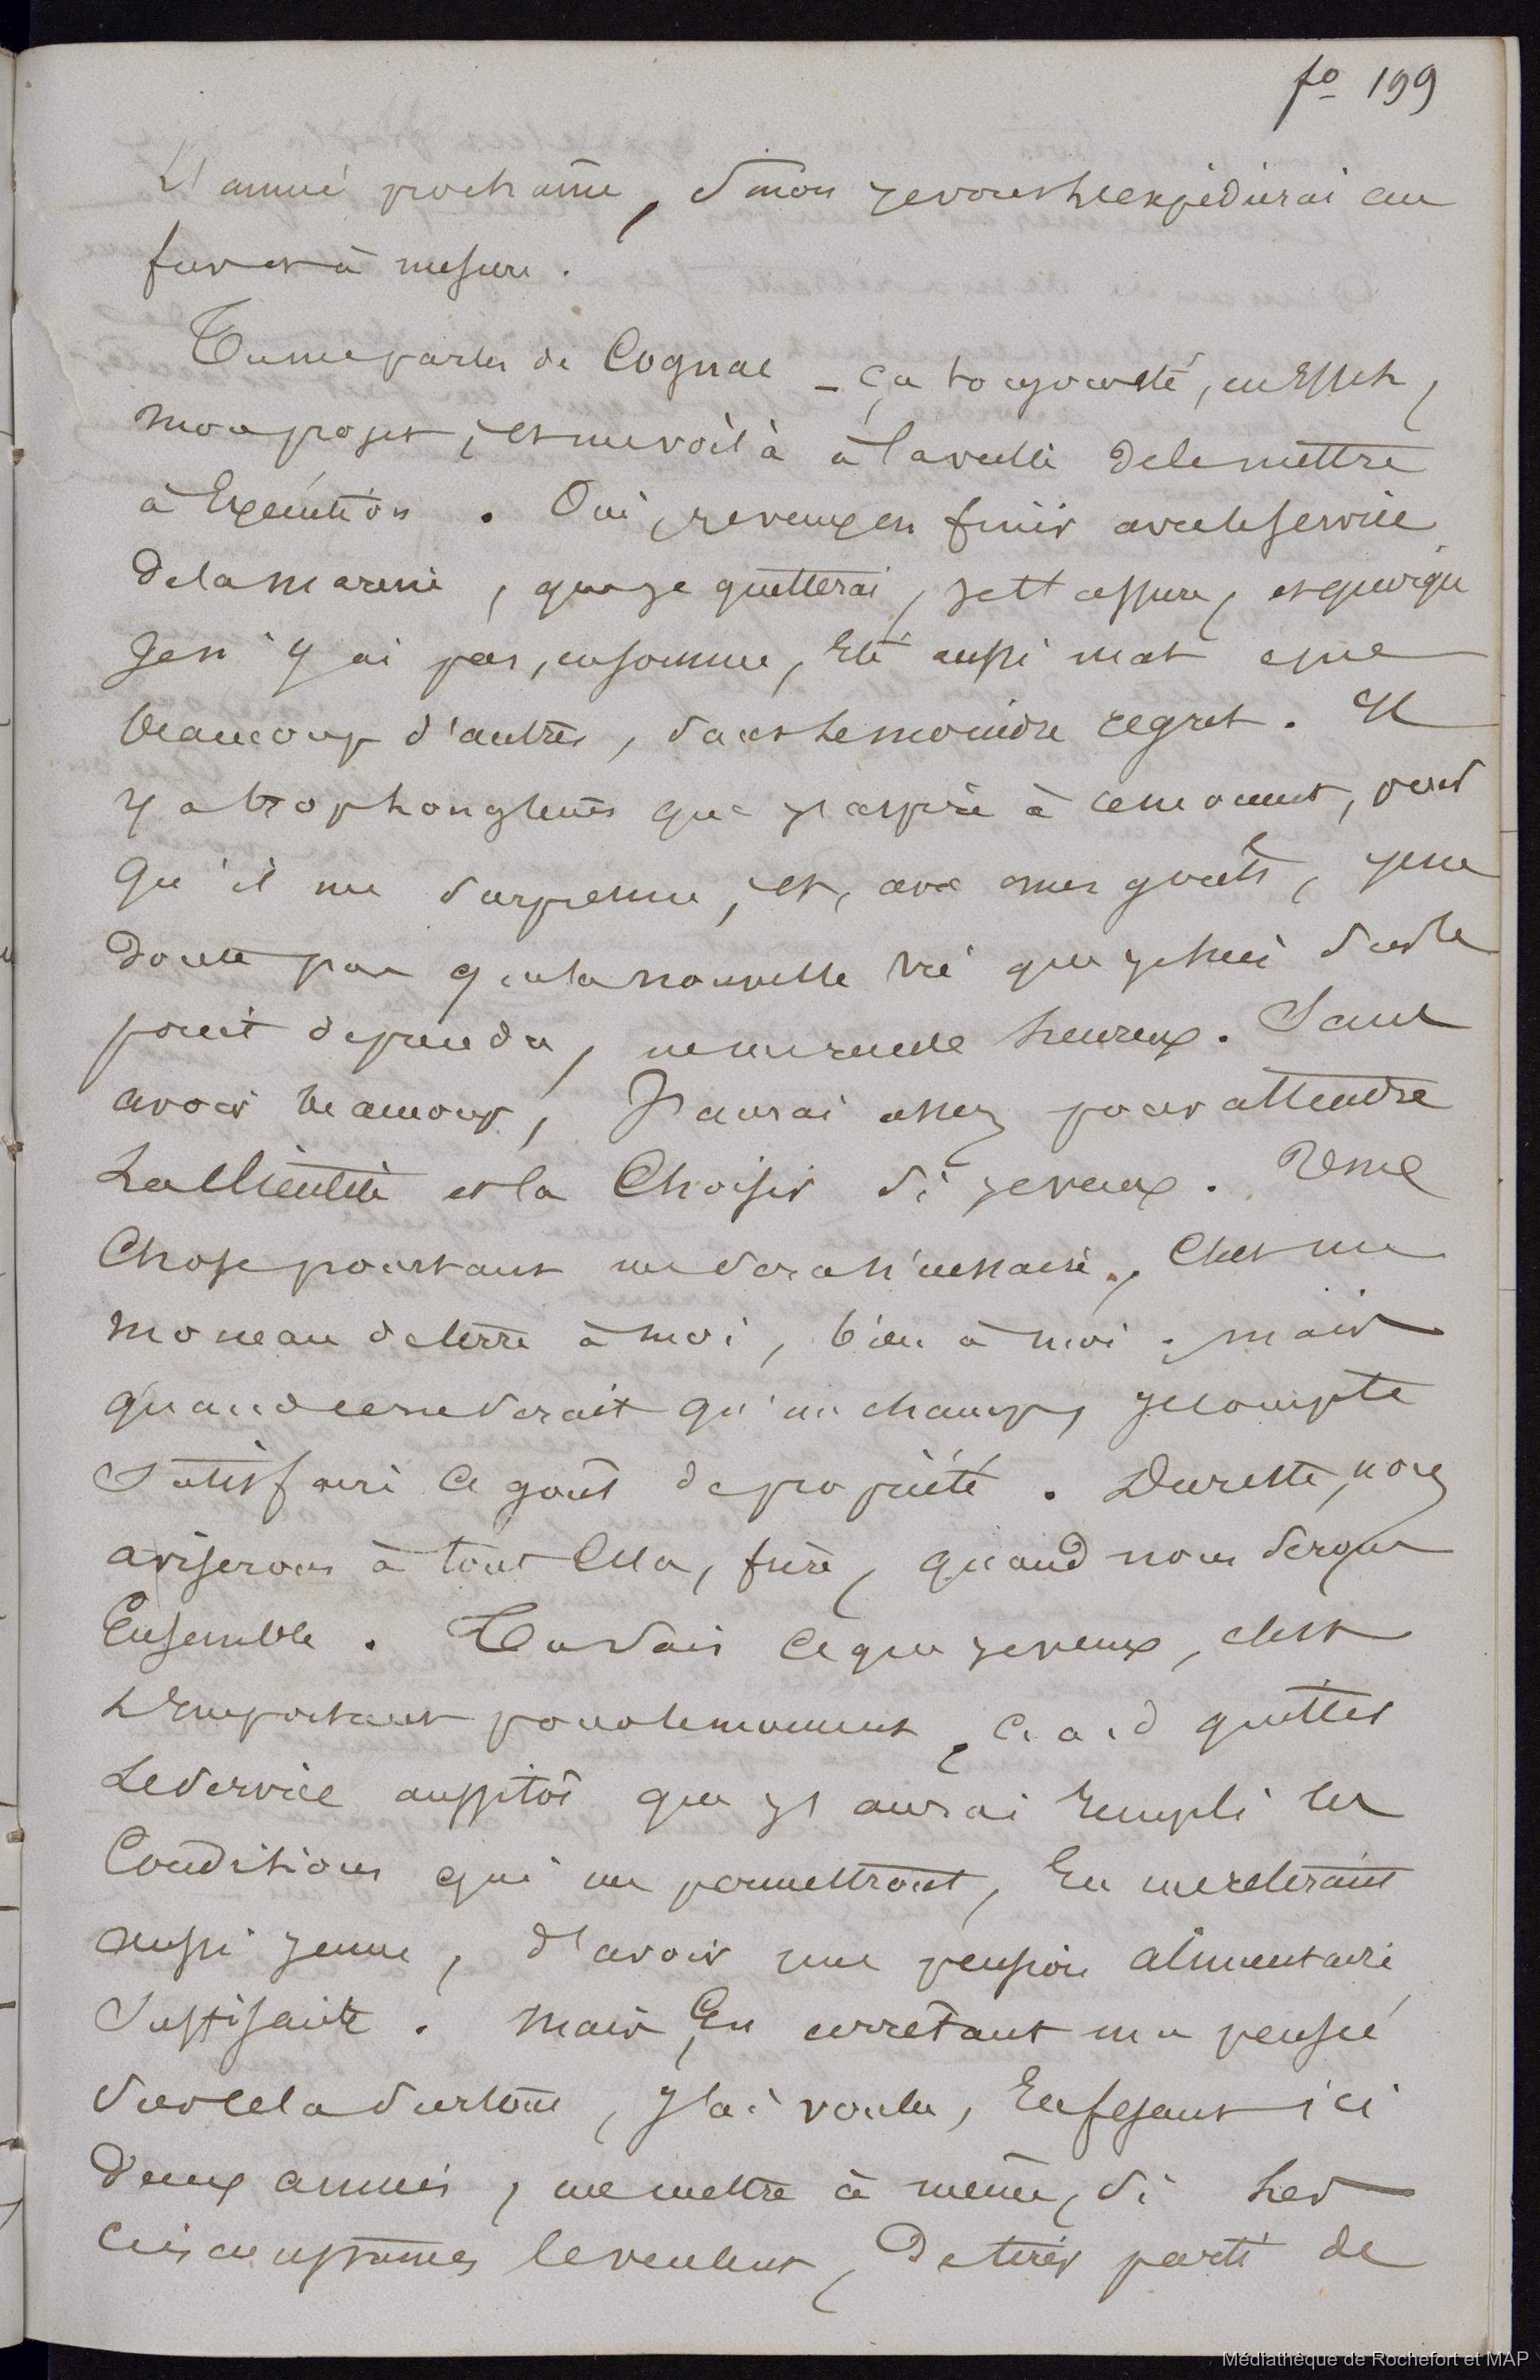 fo 199
L'année prochaine, sinon je vous les expédierai au
fur et à mesure.
Tu me parles de Cognac - ça toujours été, en effet,
mon projet, et me voilà à la veille de le mettre
à exécution. Oui, je veux en finir avec le service
de la marine, que je quitterai, je t'assure, et quoique
je n'y ai pas, en somme, été aussi mal que
beaucoup d'autres, sans le moindre regret. Il
y a trop longtems que j'aspire à ce moment, pour
qu'il me surprenne, et, avec mes goûts, je ne
doute pas que la nouvelle vie que je suis sur le
point de prendre, ne me rende heureux. Sans
avoir beaucoup, J'aurai assez pour attendre
la Clientèle et la Choisir si je veux. Une
Chose pourtant me sera nécessaire, C'est un
morceau de terre à moi, bien à moi; mais
quand ce ne serait qu'un champ, je compte
satisfaire ce goût de propriété. Du reste, nous
aviserons à tout cela, frère, quand nous serons
Ensemble. Tu sais ce que je veux, c'est
l'Important pour le moment, c. a. d quitter
le service aussitôt que j'aurai rempli les
Conditions qui me permettront, En me retirant
aussi jeune, d'avoir une pension alimentaire
suffisante. Mais En arrêtant ma pensée
sur cela surtout, J'ai voulu, En fesant ici
deux années, me mettre à même, si les
circonstances le veulent, De tirer parti de
Médiathèque de Rochefort et MAP